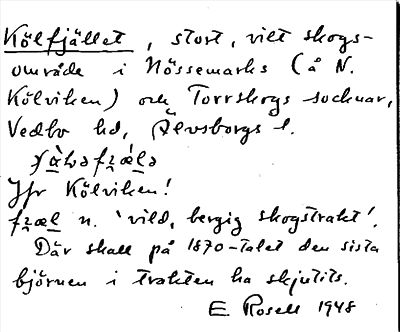 Kölfjället, stort, vilt skogs-
område i Nössemarks (å N.
Kölviken) och Torrskogs socknar,
Vedbo hd, Älvsborgs l.
Jfr Kölviken!
n. 'vild, bergig skogstrakt'.
Där skall på 1870-talet den sista
björnen i trakten ha skjutits.
E. Rosell 1948